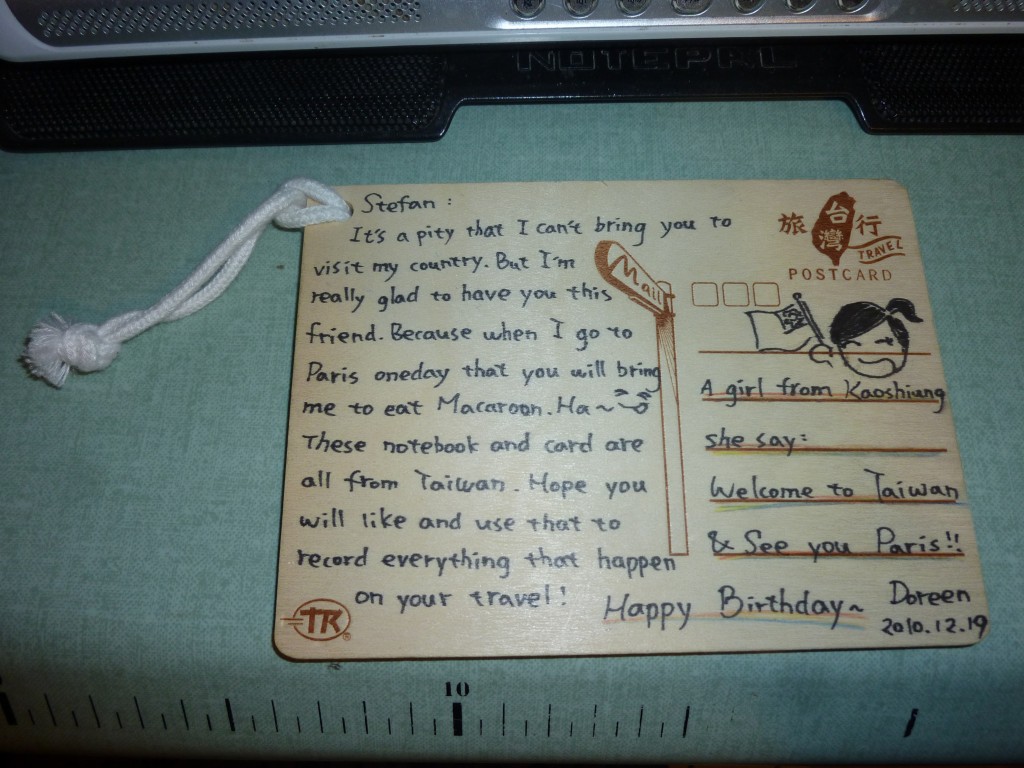 NOTEPAL
Stefan :
It's a pity that I can't bring you to
visit my country. But I'm
really glad to have you this
friend. Because when I go to
Paris oneday that you will bring
me to eat Macaroon. Ha~
These notebook and card are
all from Taiwan. Hope you
will like and use that to
record everything that happen
on your travel!
Mail
旅台灣行
TRAVEL
POSTCARD
A girl from Kaoshiung
she say:
Welcome to Taiwan
& See you Paris!!
Happy Birthday~
Doreen
2010.12.19
TR®
10